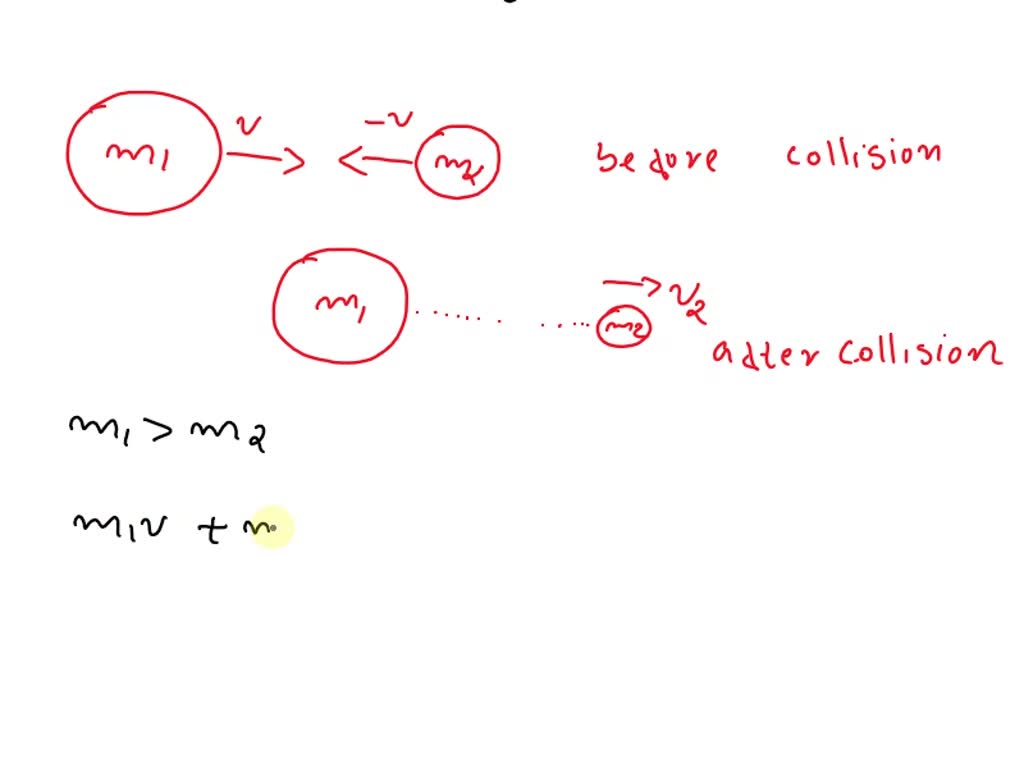 m₁ v -v m₂ before collision
m₁ m₂ v₂
after collision
m₁ > m₂
m₁v + m